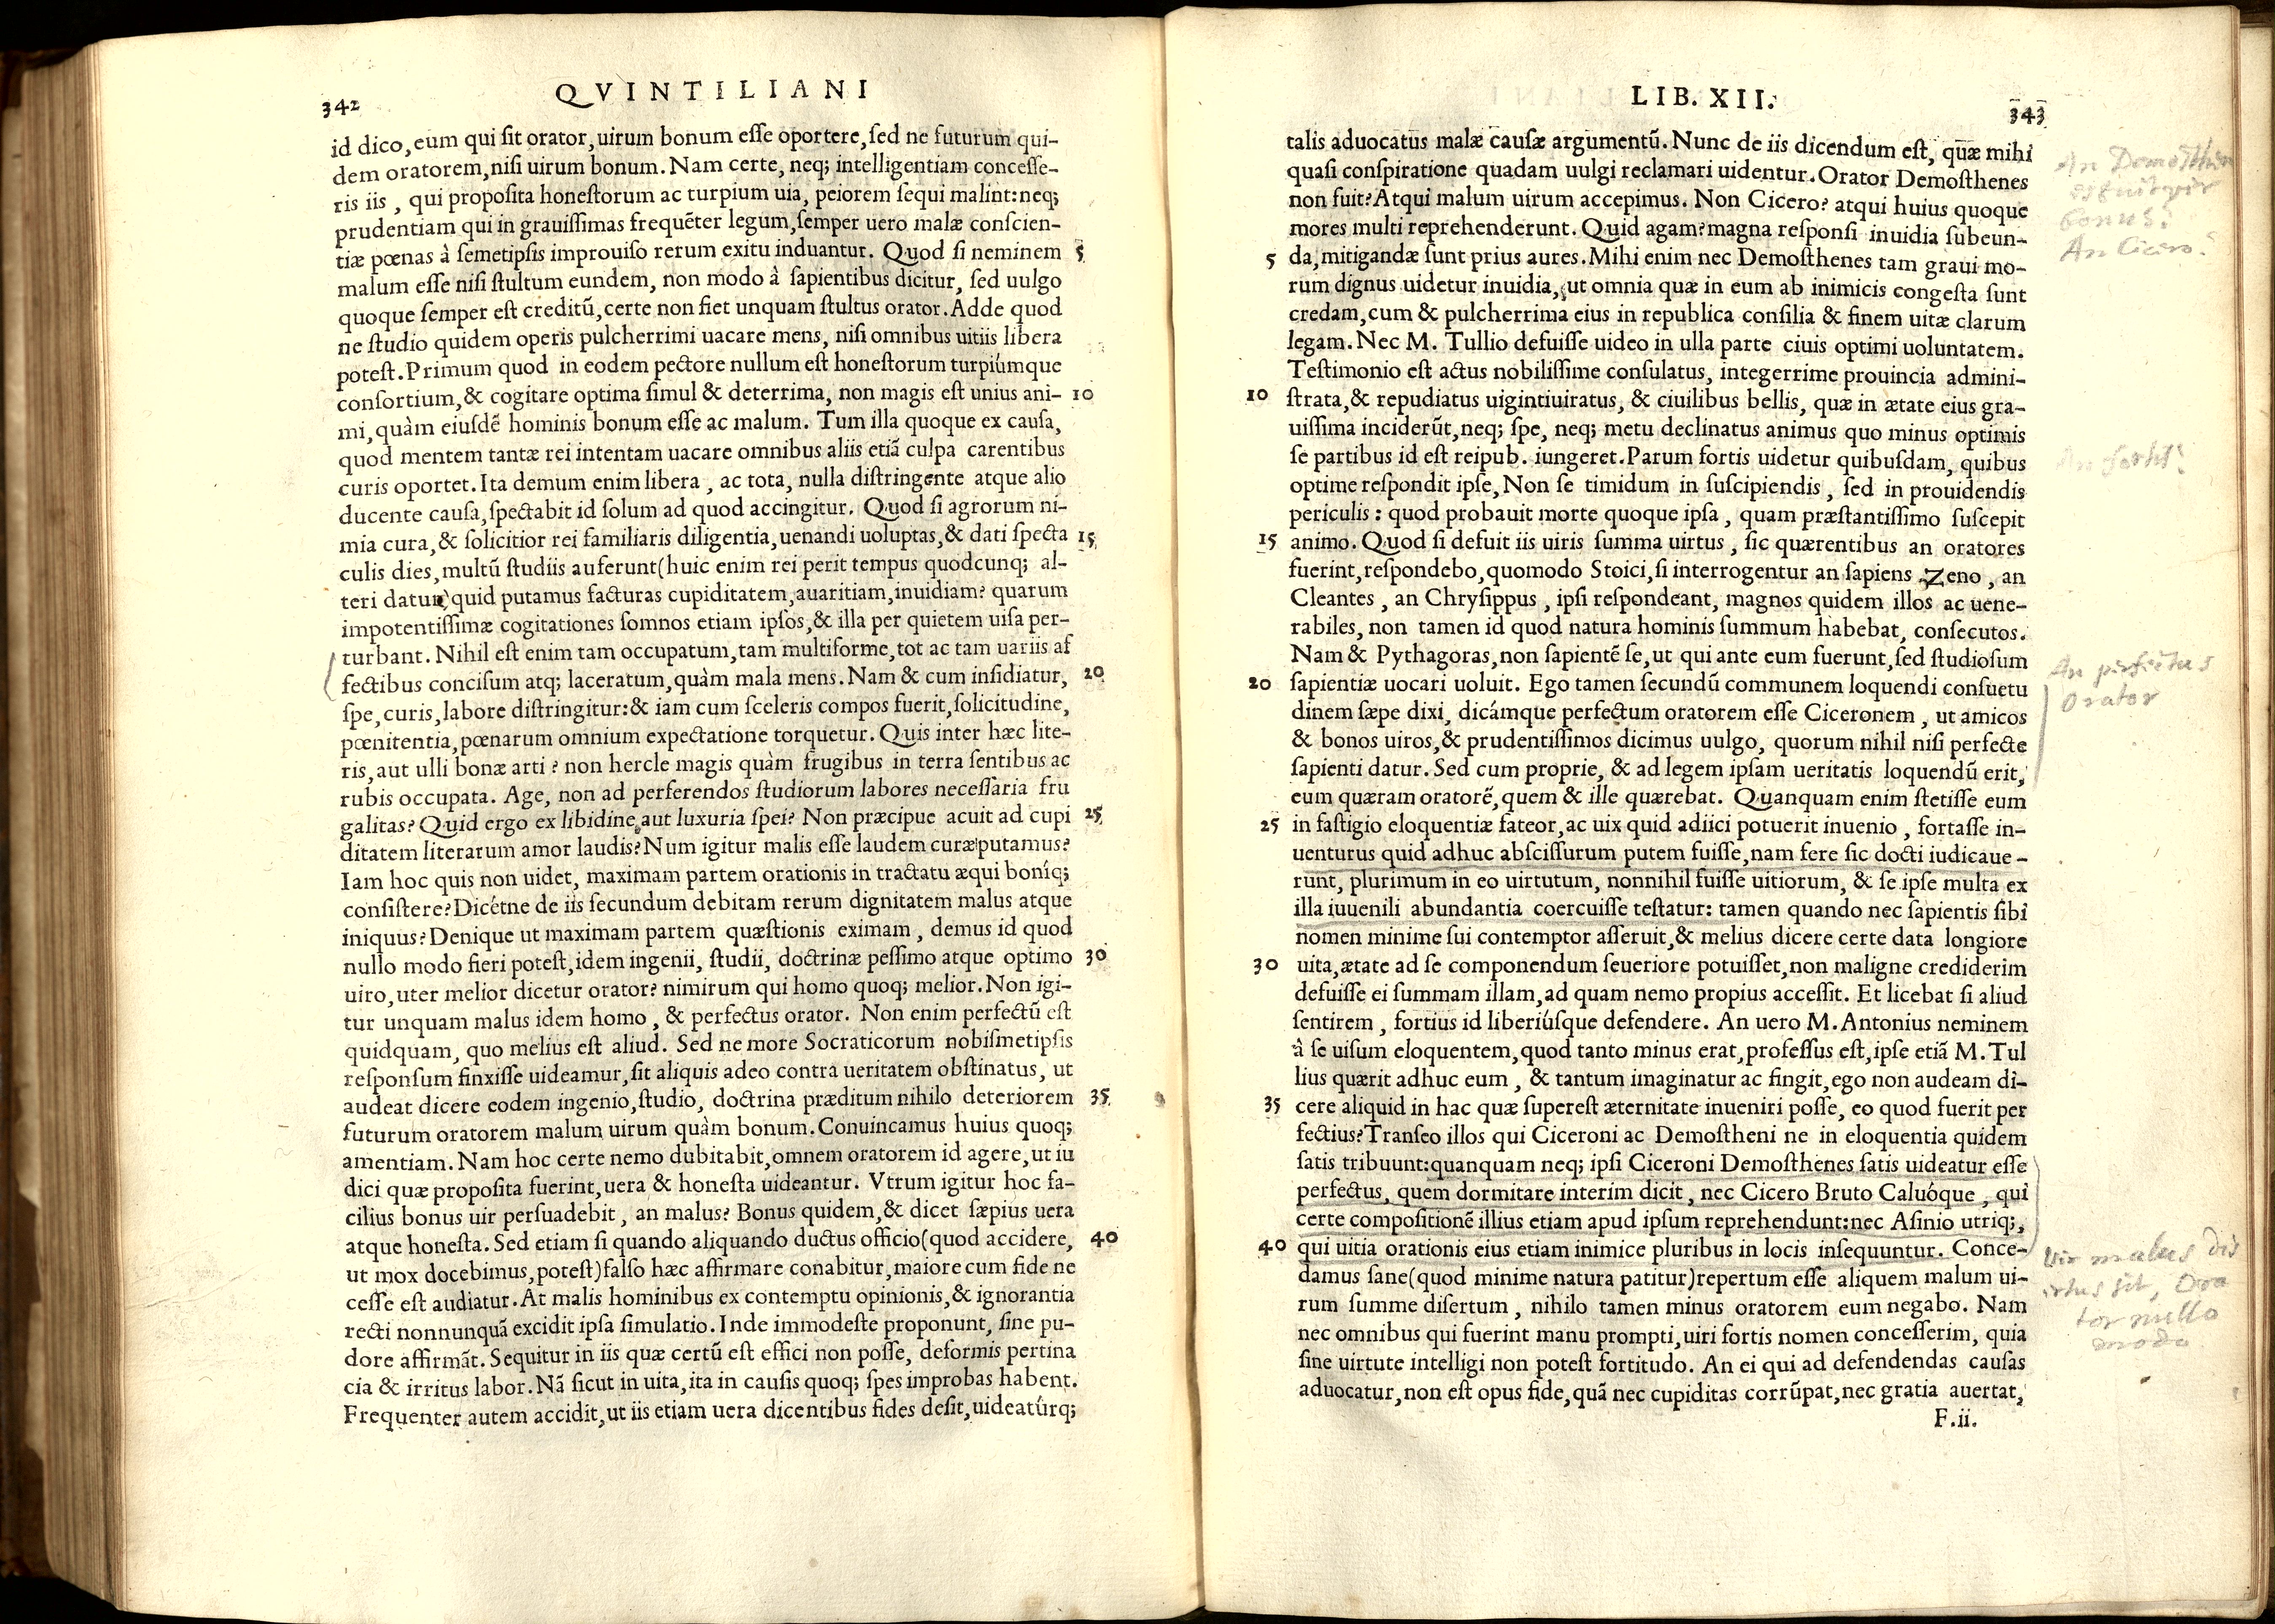 342
QVINTILIANI
id dico, eum qui ſit orator, uirum bonum eſſe oportere, ſed ne futurum qui-
dem oratorem, niſi uirum bonum. Nam certe, neq; intelligentiam conceſſe-
ris iis, qui propoſita honeſtorum ac turpium uia, peiorem ſequi malint: neq;
prudentiam qui in grauiſſimas frequẽter legum, ſemper uero malæ conſcien-
tiæ pœnas à ſemetipſis improuiſo rerum exitu induantur. Quod ſi neminem 5
malum eſſe niſi ſtultum eundem, non modo à ſapientibus dicitur, ſed uulgo
quoque ſemper eſt creditũ, certe non fiet unquam ſtultus orator. Adde quod
ne ſtudio quidem operis pulcherrimi uacare mens, niſi omnibus uitiis libera
poteſt. Primum quod in eodem pectore nullum eſt honeſtorum turpiúmque
conſortium, & cogitare optima ſimul & deterrima, non magis eſt unius ani- 10
mi, quàm eiuſdẽ hominis bonum eſſe ac malum. Tum illa quoque ex cauſa,
quod mentem tantæ rei intentam uacare omnibus aliis etiã culpa carentibus
curis oportet. Ita demum enim libera, ac tota, nulla diſtringente atque alio
ducente cauſa, ſpectabit id ſolum ad quod accingitur. Quod ſi agrorum ni-
mia cura, & ſolicitior rei familiaris diligentia, uenandi uoluptas, & dati ſpecta 15
culis dies, multũ ſtudiis auferunt (huic enim rei perit tempus quodcunq; al-
teri datur) quid putamus facturas cupiditatem, auaritiam, inuidiam? quarum
impotentiſſimæ cogitationes ſomnos etiam ipſos, & illa per quietem uiſa per-
turbant. Nihil eſt enim tam occupatum, tam multiforme, tot ac tam uariis af
fectibus conciſum atq; laceratum, quàm mala mens. Nam & cum inſidiatur, 20
ſpe, curis, labore diſtringitur: & iam cum ſceleris compos fuerit, ſolicitudine,
pœnitentia, pœnarum omnium expectatione torquetur. Quis inter hæc lite-
ris, aut ulli bonæ arti? non hercle magis quàm frugibus in terra ſentibus ac
rubis occupata. Age, non ad perferendos ſtudiorum labores neceſſaria fru
galitas? Quid ergo ex libidine, aut luxuria ſpei? Non præcipue acuit ad cupi 25
ditatem literarum amor laudis? Num igitur malis eſſe laudem curæ putamus?
Iam hoc quis non uidet, maximam partem orationis in tractatu æqui boníq;
conſiſtere? Dicétne de iis ſecundum debitam rerum dignitatem malus atque
iniquus? Denique ut maximam partem quæſtionis eximam, demus id quod
nullo modo fieri poteſt, idem ingenii, ſtudii, doctrinæ peſſimo atque optimo 30
uiro, uter melior dicetur orator? nimirum qui homo quoq; melior. Non igi-
tur unquam malus idem homo, & perfectus orator. Non enim perfectũ eſt
quidquam, quo melius eſt aliud. Sed ne more Socraticorum nobiſmetipſis
reſponſum finxiſſe uideamur, ſit aliquis adeo contra ueritatem obſtinatus, ut
audeat dicere eodem ingenio, ſtudio, doctrina præditum nihilo deteriorem 35
futurum oratorem malum uirum quàm bonum. Conuincamus huius quoq;
amentiam. Nam hoc certe nemo dubitabit, omnem oratorem id agere, ut iu
dici quæ propoſita fuerint, uera & honeſta uideantur. Vtrum igitur hoc fa-
cilius bonus uir perſuadebit, an malus? Bonus quidem, & dicet ſæpius uera
atque honeſta. Sed etiam ſi quando aliquando ductus officio (quod accidere, 40
ut mox docebimus, poteſt) falſo hæc affirmare conabitur, maiore cum fide ne
ceſſe eſt audiatur. At malis hominibus ex contemptu opinionis, & ignorantia
recti nonnunquã excidit ipſa ſimulatio. Inde immodeſte proponunt, ſine pu-
dore affirmãt. Sequitur in iis quæ certũ eſt effici non poſſe, deformis pertina
cia & irritus labor. Nã ſicut in uita, ita in cauſis quoq; ſpes improbas habent.
Frequenter autem accidit, ut iis etiam uera dicentibus fides deſit, uideatúrq;
LIB. XII.
343
talis aduocatus malæ cauſæ argumentũ. Nunc de iis dicendum eſt, quæ mihi
quaſi conſpiratione quadam uulgi reclamari uidentur. Orator Demoſthenes
non fuit? Atqui malum uirum accepimus. Non Cicero? atqui huius quoque
mores multi reprehenderunt. Quid agam? magna reſponſi inuidia ſubeun-
5 da, mitigandæ ſunt prius aures. Mihi enim nec Demoſthenes tam graui mo-
rum dignus uidetur inuidia, ut omnia quæ in eum ab inimicis congeſta ſunt
credam, cum & pulcherrima eius in republica conſilia & finem uitæ clarum
legam. Nec M. Tullio defuiſſe uideo in ulla parte ciuis optimi uoluntatem.
Teſtimonio eſt actus nobiliſſime conſulatus, integerrime prouincia admini-
10 ſtrata, & repudiatus uigintiuiratus, & ciuilibus bellis, quæ in ætate eius gra-
uiſſima inciderũt, neq; ſpe, neq; metu declinatus animus quo minus optimis
ſe partibus id eſt reipub. iungeret. Parum fortis uidetur quibuſdam, quibus
optime reſpondit ipſe, Non ſe timidum in ſuſcipiendis, ſed in prouidendis
periculis: quod probauit morte quoque ipſa, quam præſtantiſſimo ſuſcepit
15 animo. Quod ſi defuit iis uiris ſumma uirtus, ſic quærentibus an oratores
fuerint, reſpondebo, quomodo Stoici, ſi interrogentur an ſapiens Zeno, an
Cleantes, an Chryſippus, ipſi reſpondeant, magnos quidem illos ac uene-
rabiles, non tamen id quod natura hominis ſummum habebat, conſecutos.
Nam & Pythagoras, non ſapientẽ ſe, ut qui ante eum fuerunt, ſed ſtudioſum
20 ſapientiæ uocari uoluit. Ego tamen ſecundũ communem loquendi conſuetu
dinem ſæpe dixi, dicámque perfectum oratorem eſſe Ciceronem, ut amicos
& bonos uiros, & prudentiſſimos dicimus uulgo, quorum nihil niſi perfecte
ſapienti datur. Sed cum proprie, & ad legem ipſam ueritatis loquendũ erit,
eum quæram oratorẽ, quem & ille quærebat. Quanquam enim ſtetiſſe eum
25 in faſtigio eloquentiæ fateor, ac uix quid adiici potuerit inuenio, fortaſſe in-
uenturus quid adhuc abſciſſurum putem fuiſſe, nam fere ſic docti iudicaue-
runt, plurimum in eo uirtutum, nonnihil fuiſſe uitiorum, & ſe ipſe multa ex
illa iuuenili abundantia coercuiſſe teſtatur: tamen quando nec ſapientis ſibi
nomen minime ſui contemptor aſſeruit, & melius dicere certe data longiore
30 uita, ætate ad ſe componendum ſeueriore potuiſſet, non maligne crediderim
defuiſſe ei ſummam illam, ad quam nemo propius acceſſit. Et licebat ſi aliud
ſentirem, fortius id liberiúſque defendere. An uero M. Antonius neminem
à ſe uiſum eloquentem, quod tanto minus erat, profeſſus eſt, ipſe etiã M. Tul
lius quærit adhuc eum, & tantum imaginatur ac fingit, ego non audeam di-
35 cere aliquid in hac quæ ſupereſt æternitate inueniri poſſe, eo quod fuerit per
fectius? Tranſeo illos qui Ciceroni ac Demoſtheni ne in eloquentia quidem
ſatis tribuunt: quanquam neq; ipſi Ciceroni Demoſthenes ſatis uideatur eſſe
perfectus, quem dormitare interim dicit, nec Cicero Bruto Caluóque, qui
certe compoſitionẽ illius etiam apud ipſum reprehendunt: nec Aſinio utriq;,
40 qui uitia orationis eius etiam inimice pluribus in locis inſequuntur. Conce-
damus ſane (quod minime natura patitur) repertum eſſe aliquem malum ui-
rum ſumme diſertum, nihilo tamen minus oratorem eum negabo. Nam
nec omnibus qui fuerint manu prompti, uiri fortis nomen conceſſerim, quia
ſine uirtute intelligi non poteſt fortitudo. An ei qui ad defendendas cauſas
aduocatur, non eſt opus fide, quã nec cupiditas corrũpat, nec gratia auertat,
F.ii.
An
uir
bonus?
An Cicero?
An fortis?
An perfectus
Orator
Vir malus dis
ertus sit, Ora
tor nullo
modo